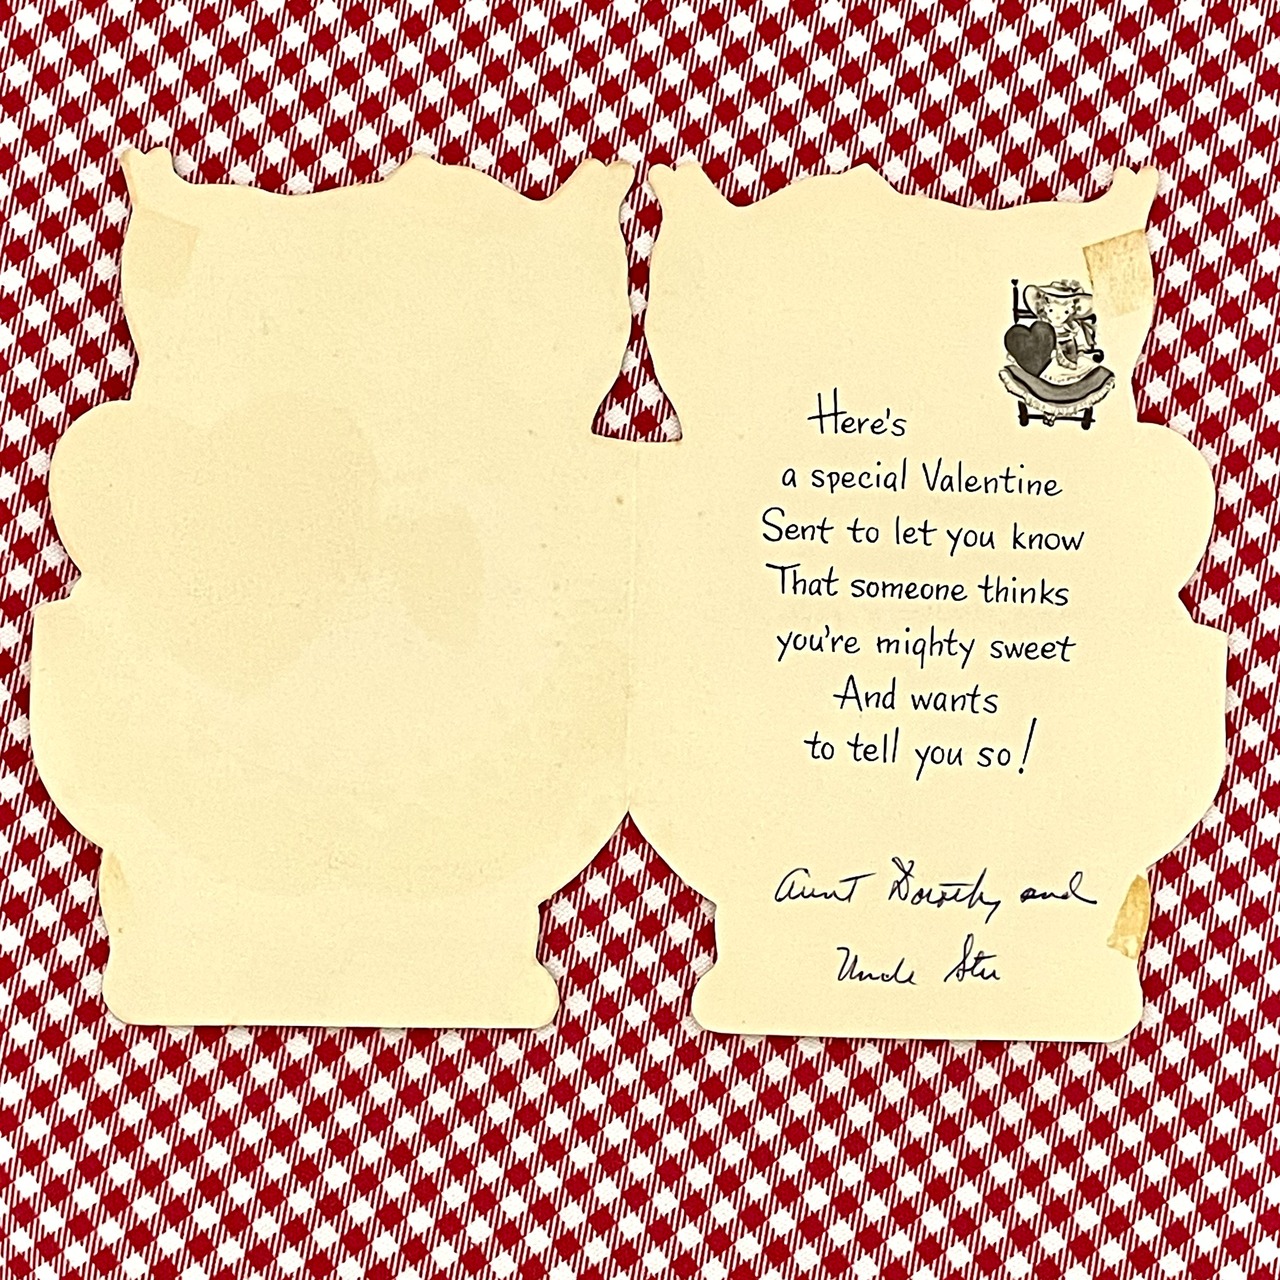 Here's
a special Valentine
Sent to let you know
That someone thinks
you're mighty sweet
And wants
to tell you so!
Aunt Dorothy and
Uncle Stu